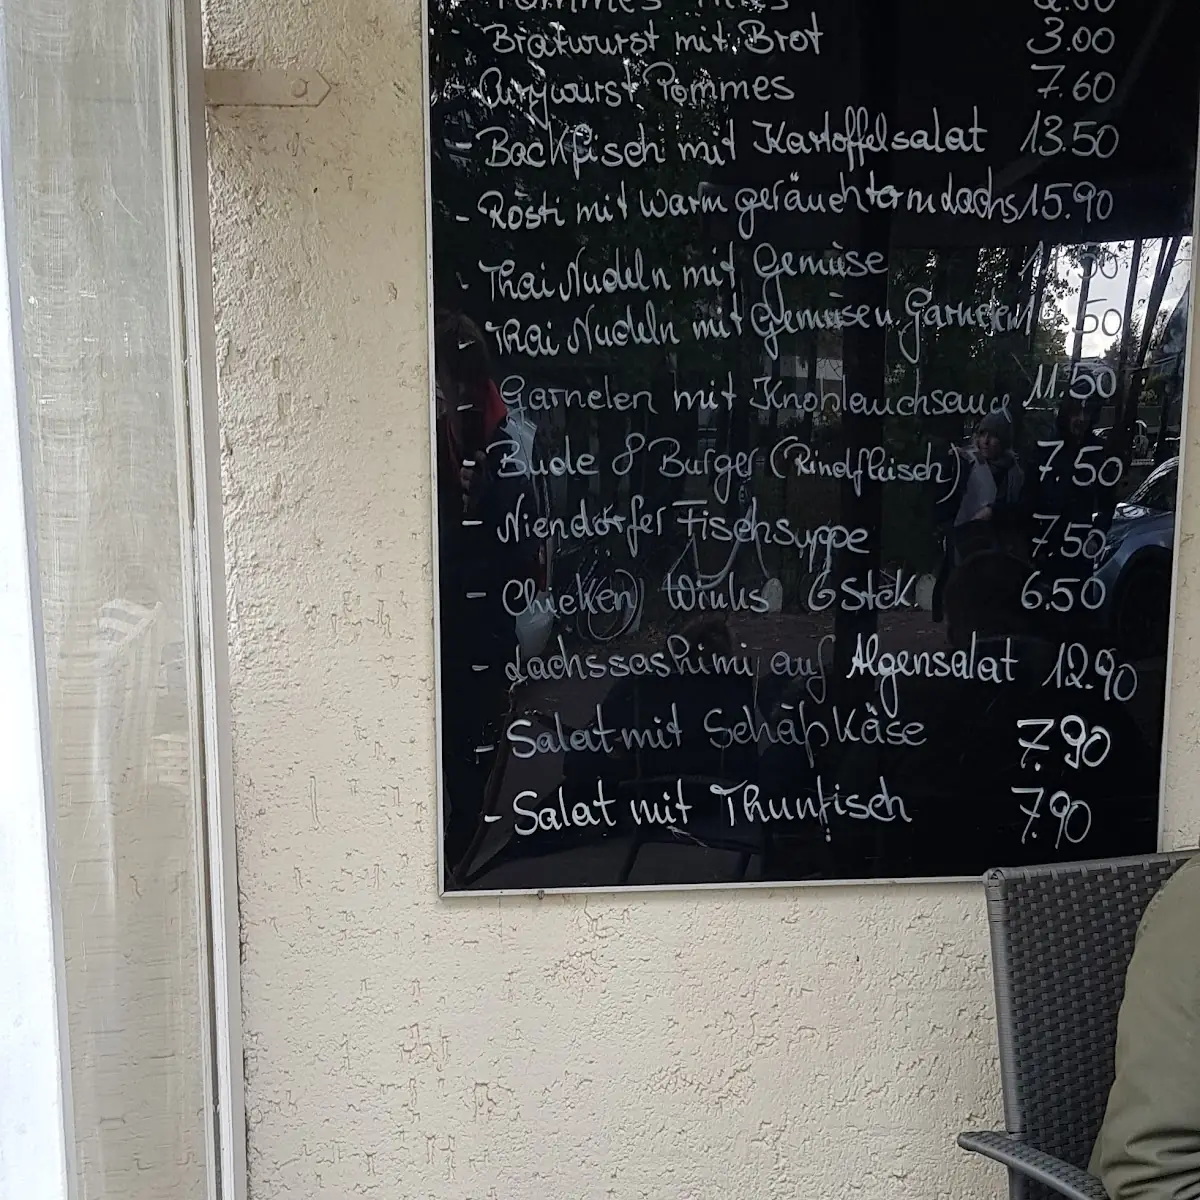 Pommes
- Bratwurst mit Brot 3.00
- Currywurst Pommes 7.60
- Backfisch mit Kartoffelsalat 13.50
- Rösti mit Warm geräuchterm Lachs 15.90
- Thai Nudeln mit Gemüse
- Thai Nudeln mit Gemüse u Garnelen
- Garnelen mit Knoblauchsauce 11.50
- Bude 8 Burger (Rindfleisch) 7.50
- Niendorfer Fischsuppe 7.50
- Chicken Winks 6 Stck. 6.50
- Lachssashimi auf Algensalat 12.90
- Salat mit Schafskäse 7.90
- Salat mit Thunfisch 7.90